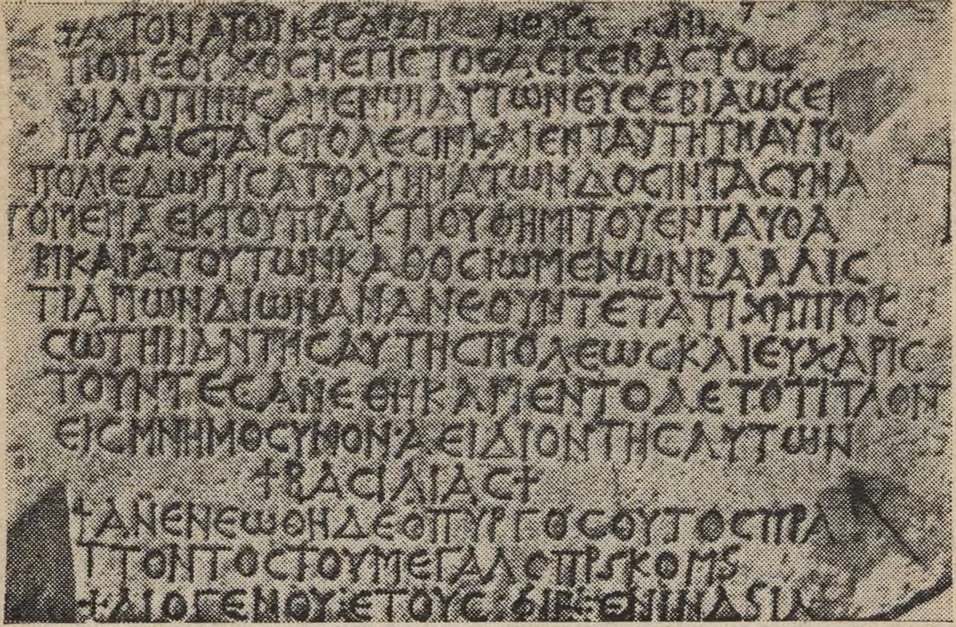 ΚΕСΑΡ
ΤΡΟΠΕΟΥΧΟСΜΕΓΙСΤΟСΑΕΙСΕΒΑСΤΟС
ΦΙΛΟΤΙΜΗСΑΜΕΝΗΗΑΥΤΩΝΕΥСΕΒΙΑΩСΕΝ
ΠΑСΑΙСΤΑΙСΠΟΛΕСΙΝΚΑΙΕΝΤΑΥΤΗΤΗΑΥΤΟ
ΠΟΛΙΕΔΩΡΗСΑΤΟΧΡΗΜΑΤΩΝΔΟСΙΝΤΑСΥΝΑ
ΓΟΜΕΝΑΕΚΤΟΥΠΡΑΚΤΙΟΥΦΗΜΙΤΟΥΕΝΤΑΥΘΑ
ΒΙΚΑΡΑΤΟΥΤΩΝΚΑΘΟСΙΩΜΕΝΩΝΒΑΛΛΙС
ΤΡΑΡΙΩΝΔΙΩΝΑΝΑΝΕΟΥΝΤΕΤΑΤΙΧΗΠΡΟС
СΩΤΗΡΙΑΝΤΗСΑΥΤΗСΠΟΛΕΩСΚΑΙΕΥΧΑΡΙС
ΤΟΥΝΤΕСΑΝΕΘΗΚΑΜΕΝΤΟΔΕΤΟΤΙΤΛΟΝ
ΕΙСΜΝΗΜΟСΥΝΟΝΑΕΙΔΙΟΝΤΗСΑΥΤΩΝ
†ΒΑСΙΛΙΑС†
†ΑΝΕΝΕΩΘΗΔΕΟΠΥΡΓΟСΟΥΤΟСΠΡΑ
ΤΤΟΝΤΟСΤΟΥΜΕΓΑΛΟΠΡSΚΟΜS
†ΔΙΟΓΕΝΟΥΕΤΟΥСΦΙΒΕΝΙΝΔSΙΑ